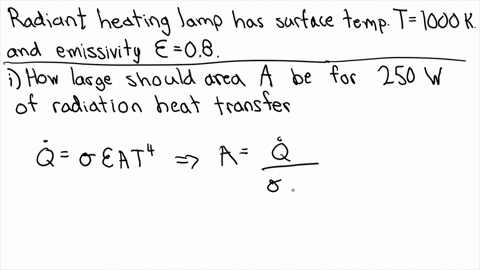 Radiant heating lamp has surface temp. T=1000 K
and emissivity ε=0.8.
i) How large should area A be for 250 W
of radiation heat transfer
Q̇ = σ ε A T⁴ ⇒ A = Q̇
σ .